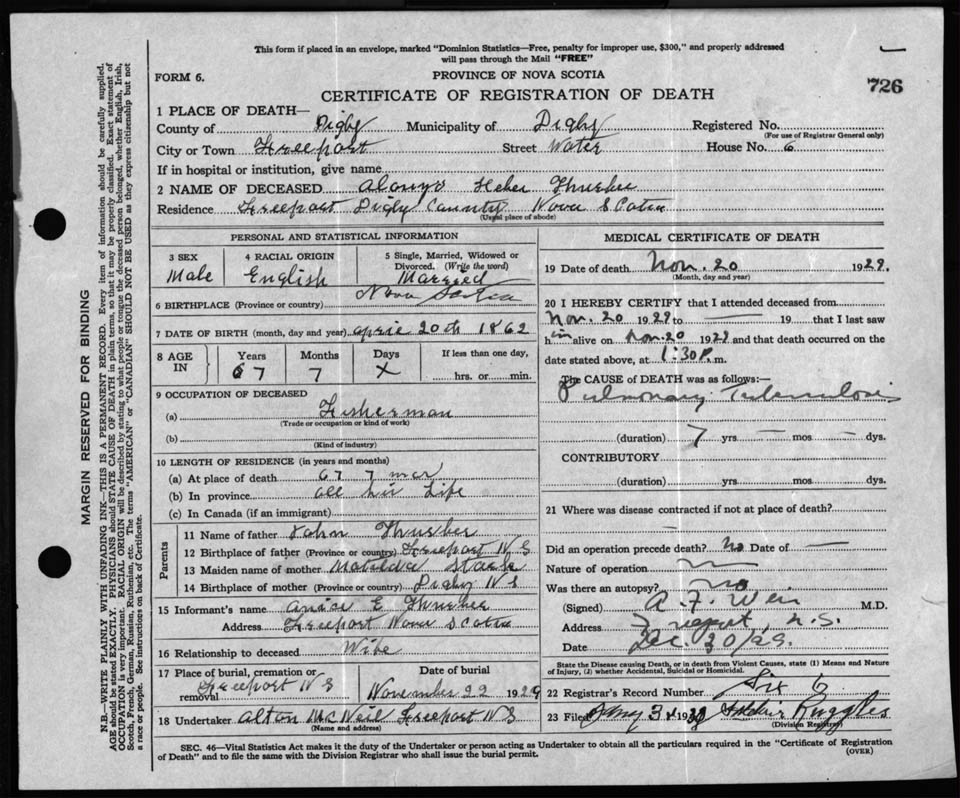 This form if placed in an envelope, marked "Dominion Statistics—Free, penalty for improper use, $300," and properly addressed
will pass through the Mail "FREE"
FORM 6.
PROVINCE OF NOVA SCOTIA
726
CERTIFICATE OF REGISTRATION OF DEATH
1 PLACE OF DEATH—
County of Digby Municipality of Digby Registered No.
(For use of Registrar General only)
City or Town Freeport Street Water House No. 6
If in hospital or institution, give name
2 NAME OF DECEASED Alonzo Heber Thurber
Residence Freeport Digby County Nova Scotia
(Usual place of abode)
PERSONAL AND STATISTICAL INFORMATION
3 SEX 4 RACIAL ORIGIN 5 Single, Married, Widowed or
Divorced. (Write the word)
Male English Married
6 BIRTHPLACE (Province or country) Nova Scotia
7 DATE OF BIRTH (month, day and year) April 20th 1862
8 AGE IN Years Months Days If less than one day,
67 7 X hrs. or min.
9 OCCUPATION OF DECEASED
(a) Fisherman
(Trade or occupation or kind of work)
(b)
(Kind of industry)
10 LENGTH OF RESIDENCE (in years and months)
(a) At place of death 67 7 mos
(b) In province all his Life
(c) In Canada (if an immigrant)
Parents
11 Name of father John Thurber
12 Birthplace of father (Province or country) Freeport N S
13 Maiden name of mother Matilda
14 Birthplace of mother (Province or country) Digby N S
15 Informant's name E Thurber
Address Freeport Nova Scotia
16 Relationship to deceased Wife
17 Place of burial, cremation or removal Freeport N S
Date of burial
November 22 1929
18 Undertaker Alton McNeil Freeport N S
(Name and address)
MEDICAL CERTIFICATE OF DEATH
19 Date of death Nov. 20 1929.
(Month, day and year)
20 I HEREBY CERTIFY that I attended deceased from
Nov. 20 1929 to — 19 that I last saw
him alive on Nov. 20 1929 and that death occurred on the
date stated above, at 1:30 P. m.
The CAUSE of DEATH was as follows:—
Pulmonary Tuberculosis
(duration) 7 yrs. — mos — dys.
CONTRIBUTORY
(duration) yrs. mos. dys.
21 Where was disease contracted if not at place of death?
—
Did an operation precede death? No Date of —
Nature of operation
Was there an autopsy? no
(Signed) A. F. Weir M.D.
Address Freeport, N.S.
Date Dec. 30/29.
State the Disease causing Death, or in death from Violent Causes, state (1) Means and Nature
of Injury, (2) whether Accidental, Suicidal or Homicidal.
22 Registrar's Record Number Six 6
23 Filed Jany 3 19 Ruggles
(Division Registrar)
SEC. 46—Vital Statistics Act makes it the duty of the Undertaker or person acting as Undertaker to obtain all the particulars required in the "Certificate of Registration
of Death" and to file the same with the Division Registrar who shall issue the burial permit.
(OVER)
MARGIN RESERVED FOR BINDING
N.B.—WRITE PLAINLY WITH UNFADING INK—THIS IS A PERMANENT RECORD. Every item of information should be carefully supplied.
AGE should be stated EXACTLY. PHYSICIANS should STATE CAUSE OF DEATH in plain terms, so that it may be properly classified. Exact statement of
OCCUPATION is very important. RACIAL ORIGIN will be described by stating to what people or tongue the deceased person belonged, whether English, Irish,
Scotch, French, German, Russian, Ruthenian, etc. The terms "AMERICAN" or "CANADIAN" SHOULD NOT BE USED as they express citizenship but not
a race or people. See instructions on back of Certificate.